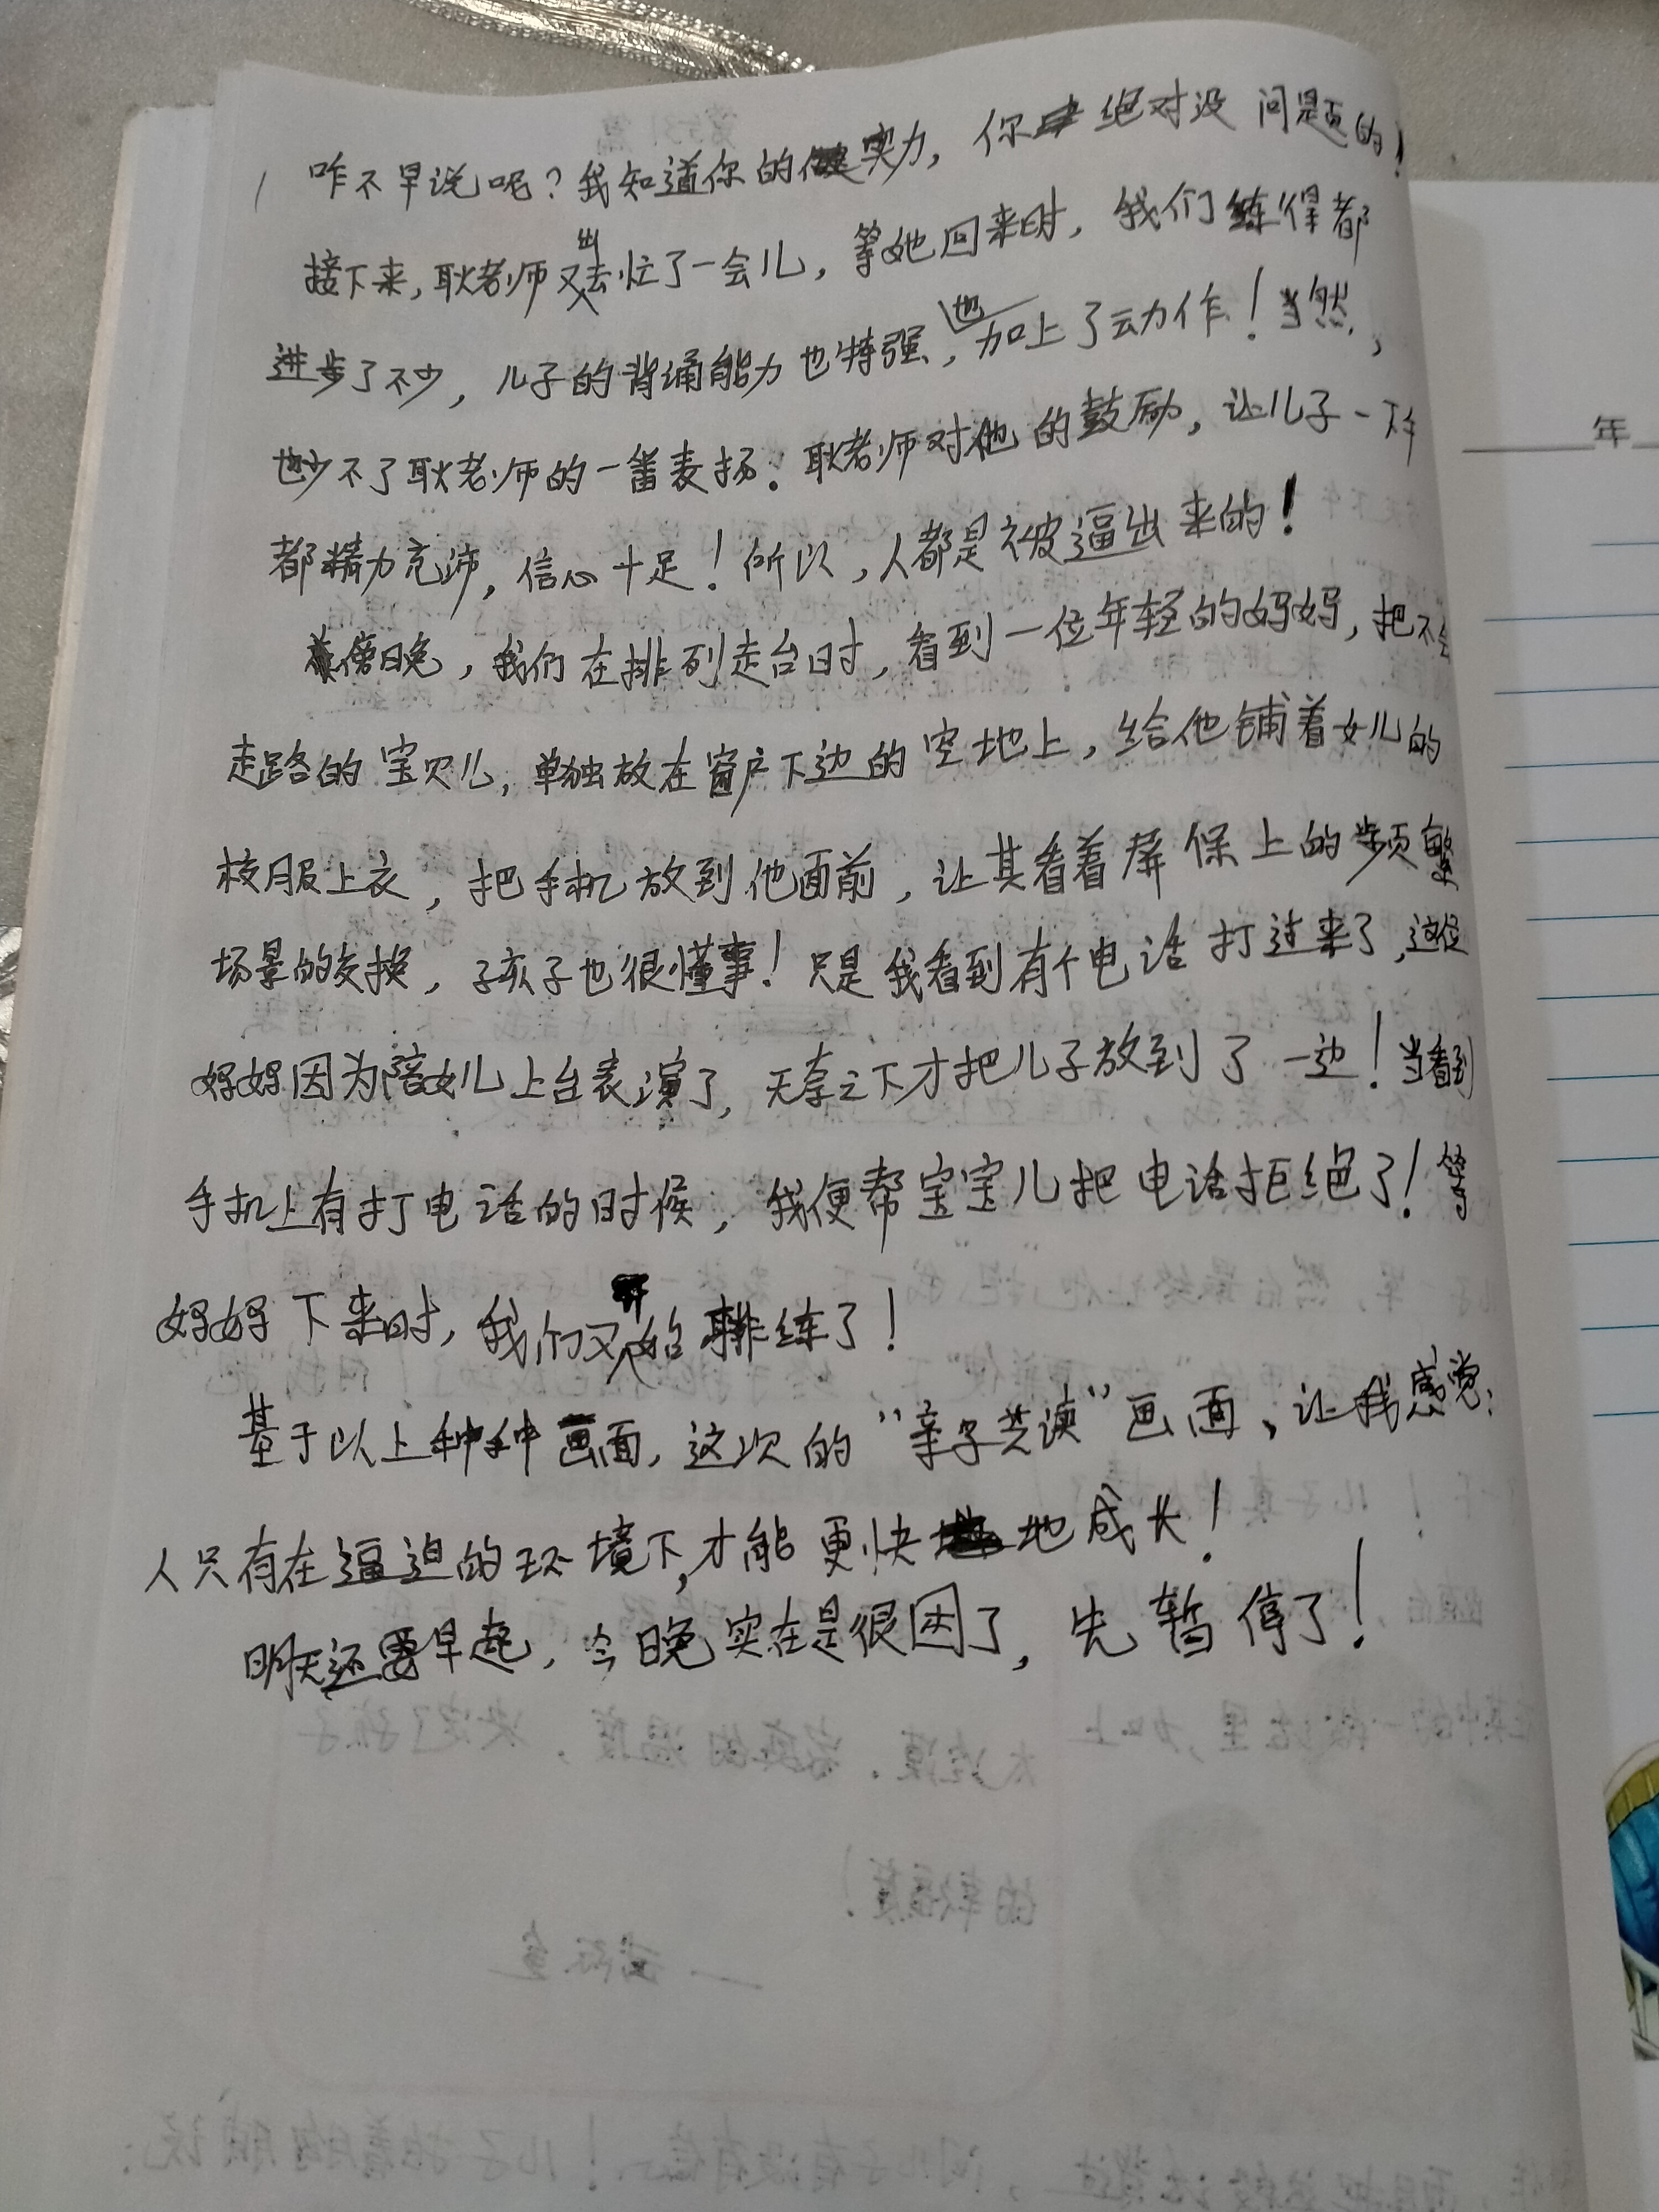 咋不早说呢？我知道你的实力，你绝对没问题的！
接下来，耿老师又出去忙了一会儿，等她回来时，我们练得都
进步了不少，儿子的背诵能力也特强，也加上了动作！当然，
也少不了耿老师的一番表扬。耿老师对他的鼓励，让儿子一下午
都精力充沛，信心十足！所以，人都是被逼出来的！
傍晚，我们在排列走台时，看到一位年轻的妈妈，把不会
走路的宝贝儿，单独放在窗户下边的空地上，给他铺着女儿的
校服上衣，把手机放到他面前，让其看着屏保上的频繁
场景的交换，孩子也很懂事！只是我看到有个电话打过来了，这位
妈妈因为陪女儿上台表演了，无奈之下才把儿子放到了一边！当看到
手机上有打电话的时候，我便帮宝宝儿把电话拒绝了！等
妈妈下来时，我们又开始排练了！
基于以上种种画面，这次的“亲子共读”画面，让我感觉：
人只有在逼迫的环境下，才能更快地成长！
明天还要早起，今晚实在是很困了，先暂停了！
年